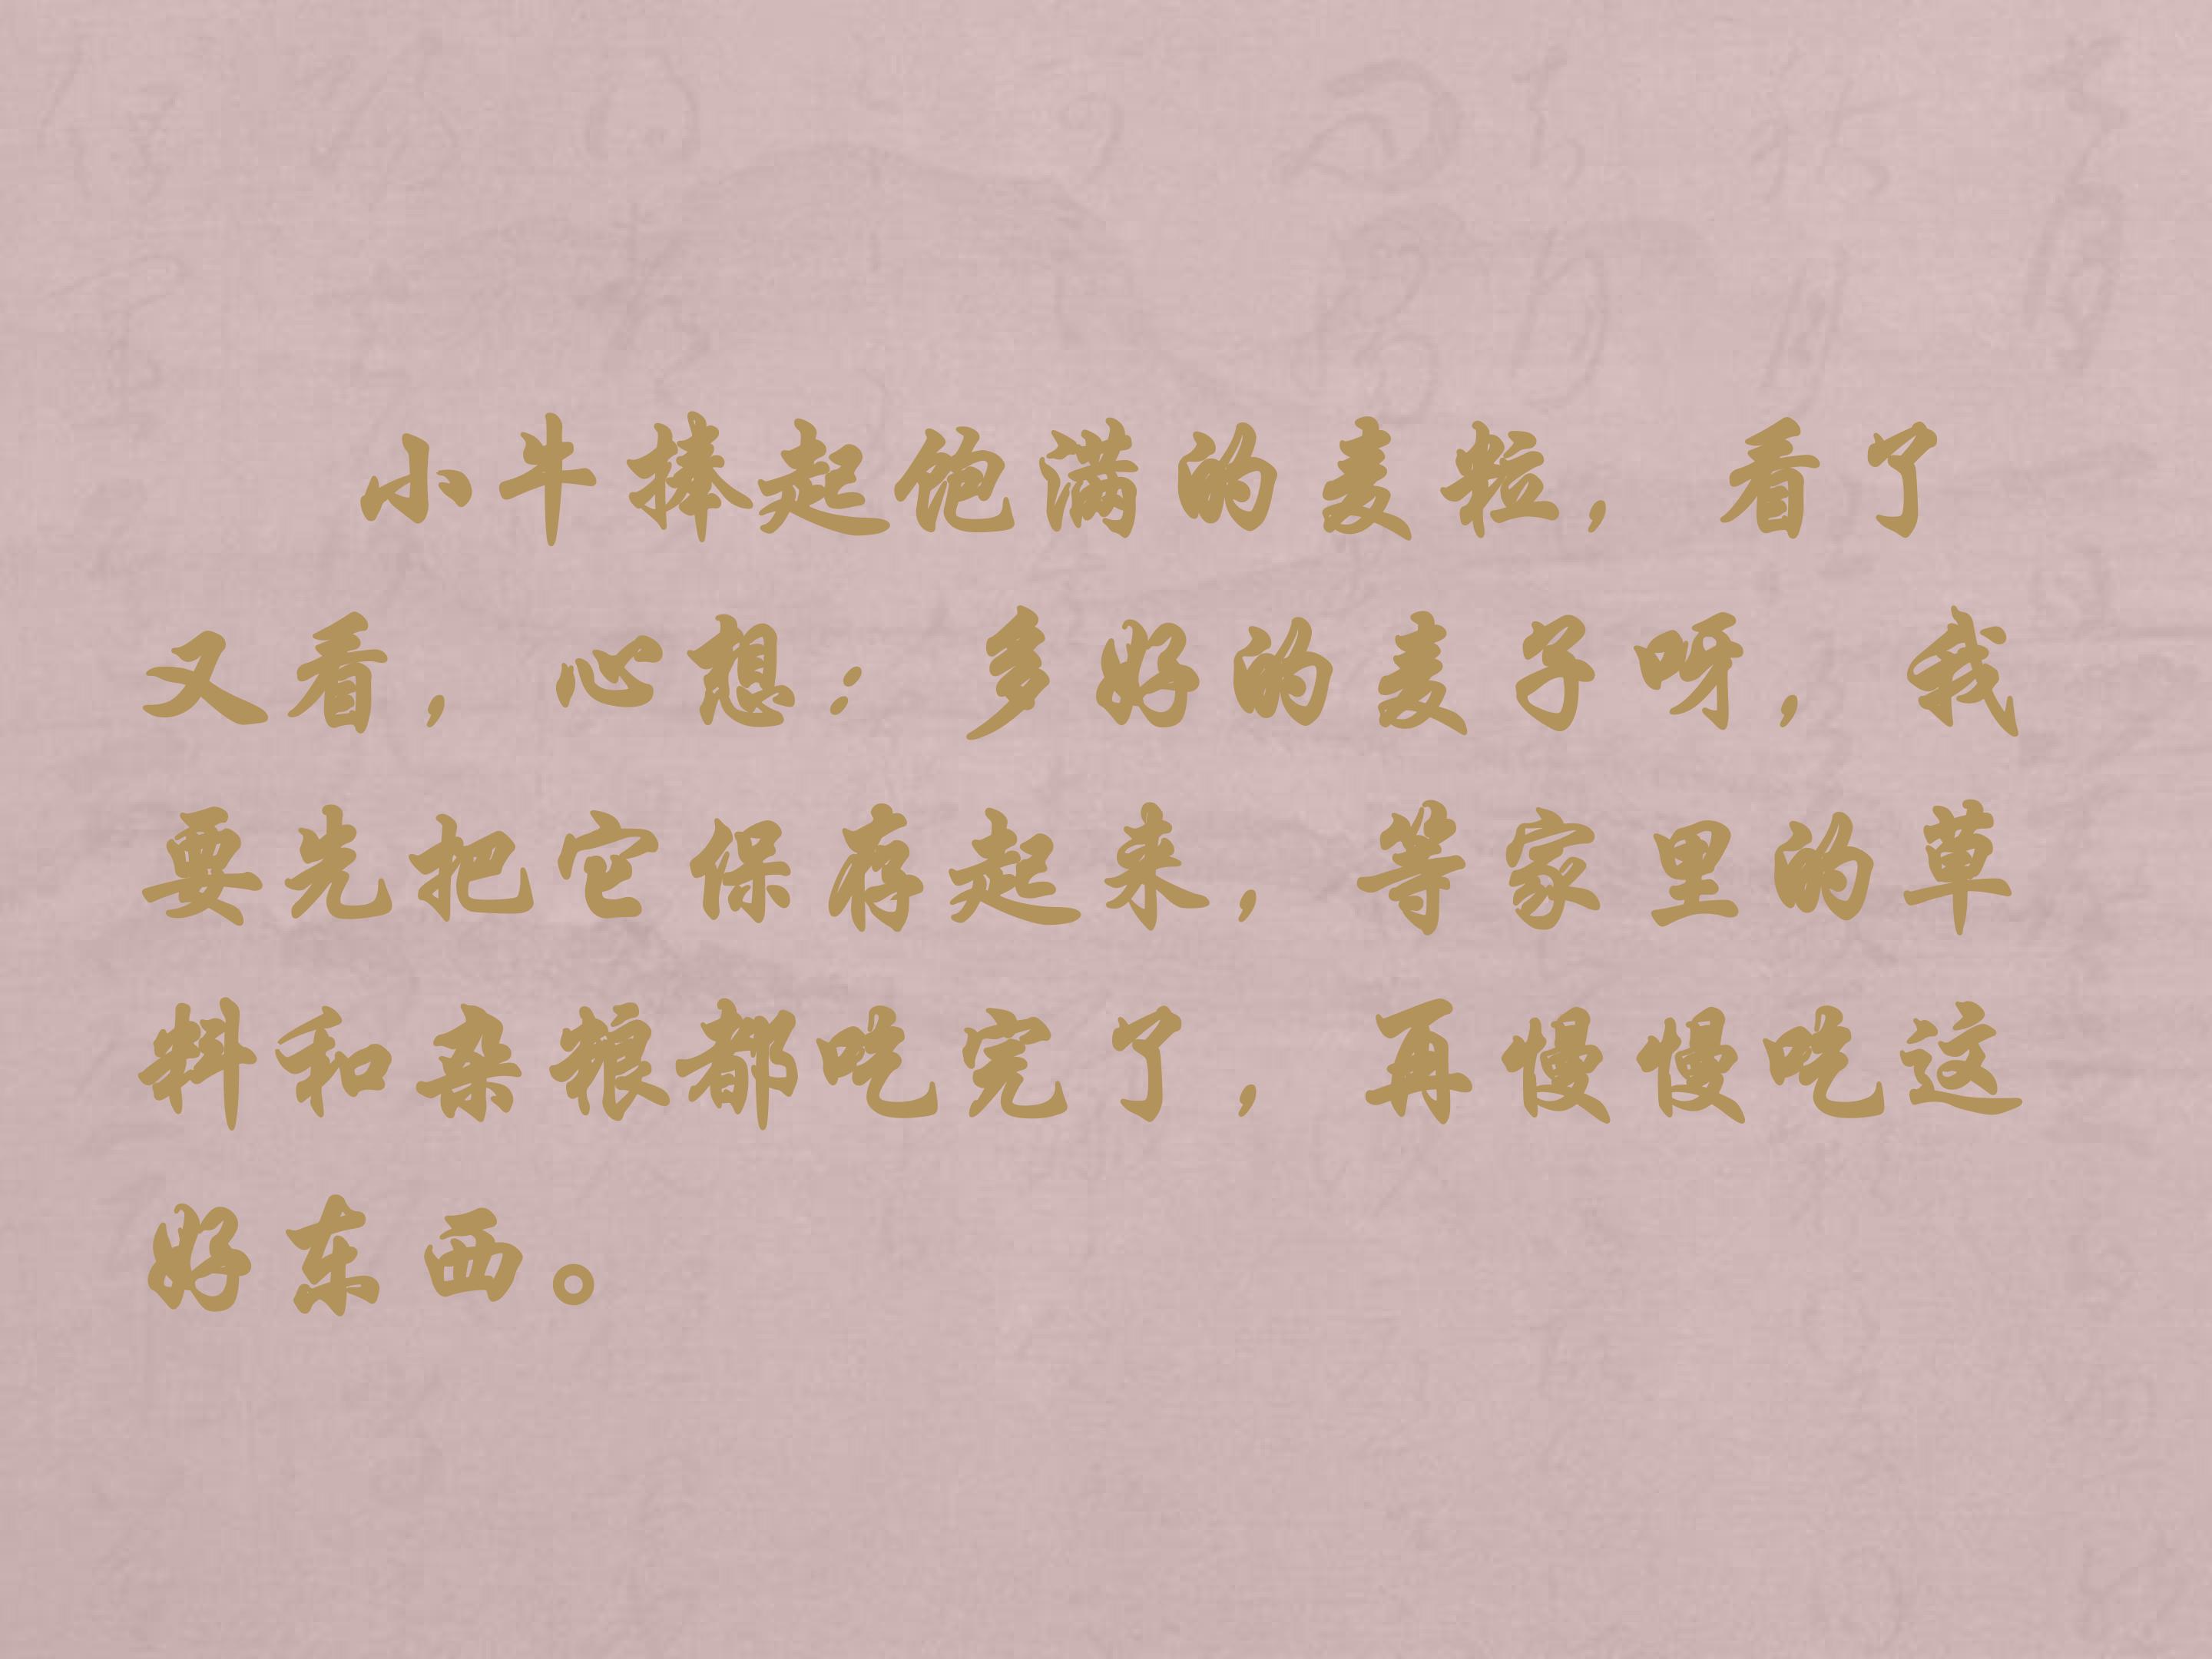 小牛捧起饱满的麦粒，看了
又看，心想：多好的麦子呀，我
要先把它保存起来，等家里的草
料和杂粮都吃完了，再慢慢吃这
好东西。